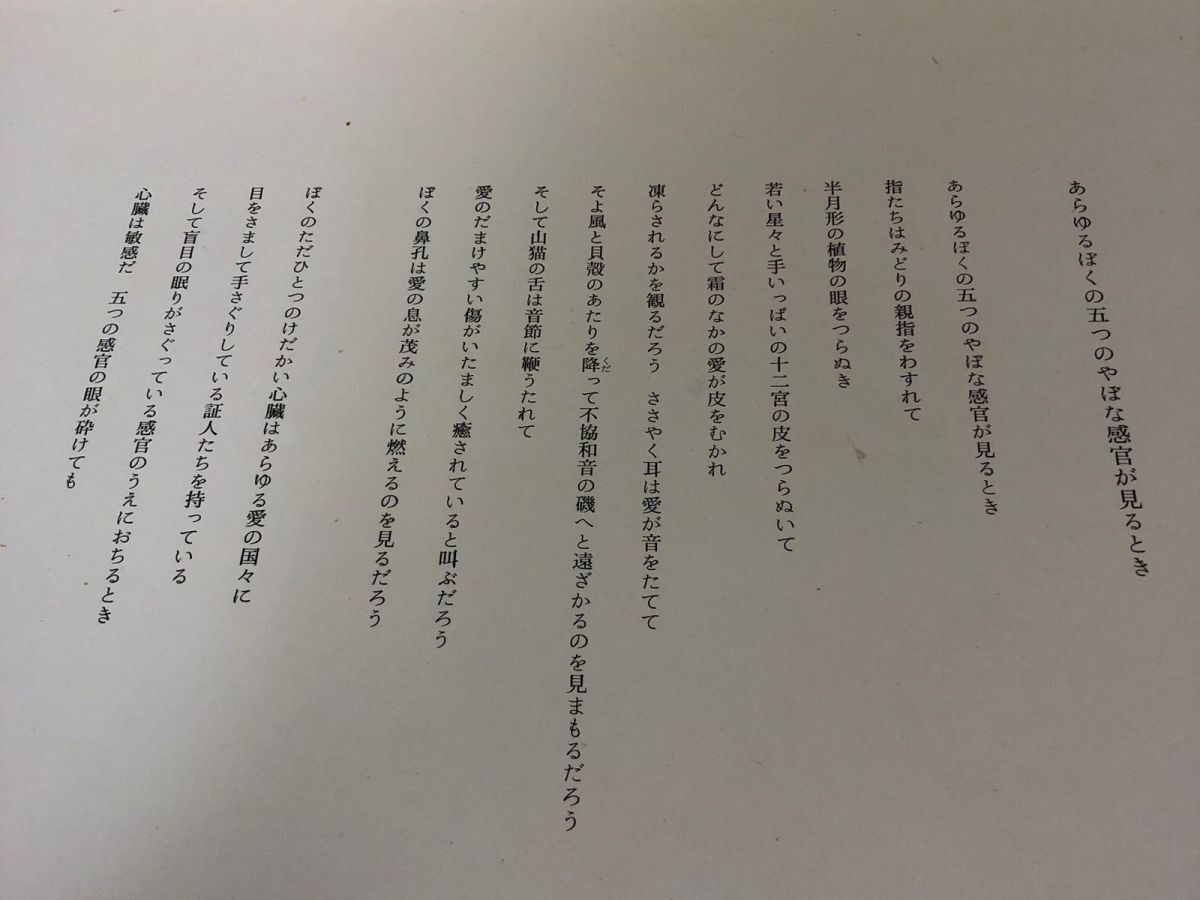 あらゆるぼくの五つのやぼな感官が見るとき
あらゆるぼくの五つのやぼな感官が見るとき
指たちはみどりの親指をわすれて
半月形の植物の眼をつらぬき
若い星々と手いっぱいの十二宮の皮をつらぬいて
どんなにして霜のなかの愛が皮をむかれ
凍らされるかを観るだろう　ささやく耳は愛が音をたてて
そよ風と貝殻のあたりを降くだって不協和音の磯へと遠ざかるのを見まもるだろう
そして山猫の舌は音節に鞭うたれて
愛のだまけやすい傷がいたましく癒されていると叫ぶだろう
ぼくの鼻孔は愛の息が茂みのように燃えるのを見るだろう
ぼくのただひとつのけだかい心臓はあらゆる愛の国々に
目をさまして手さぐりしている証人たちを持っている
そして盲目の眠りがさぐっている感官のうえにおちるとき
心臓は敏感だ　五つの感官の眼が砕けても